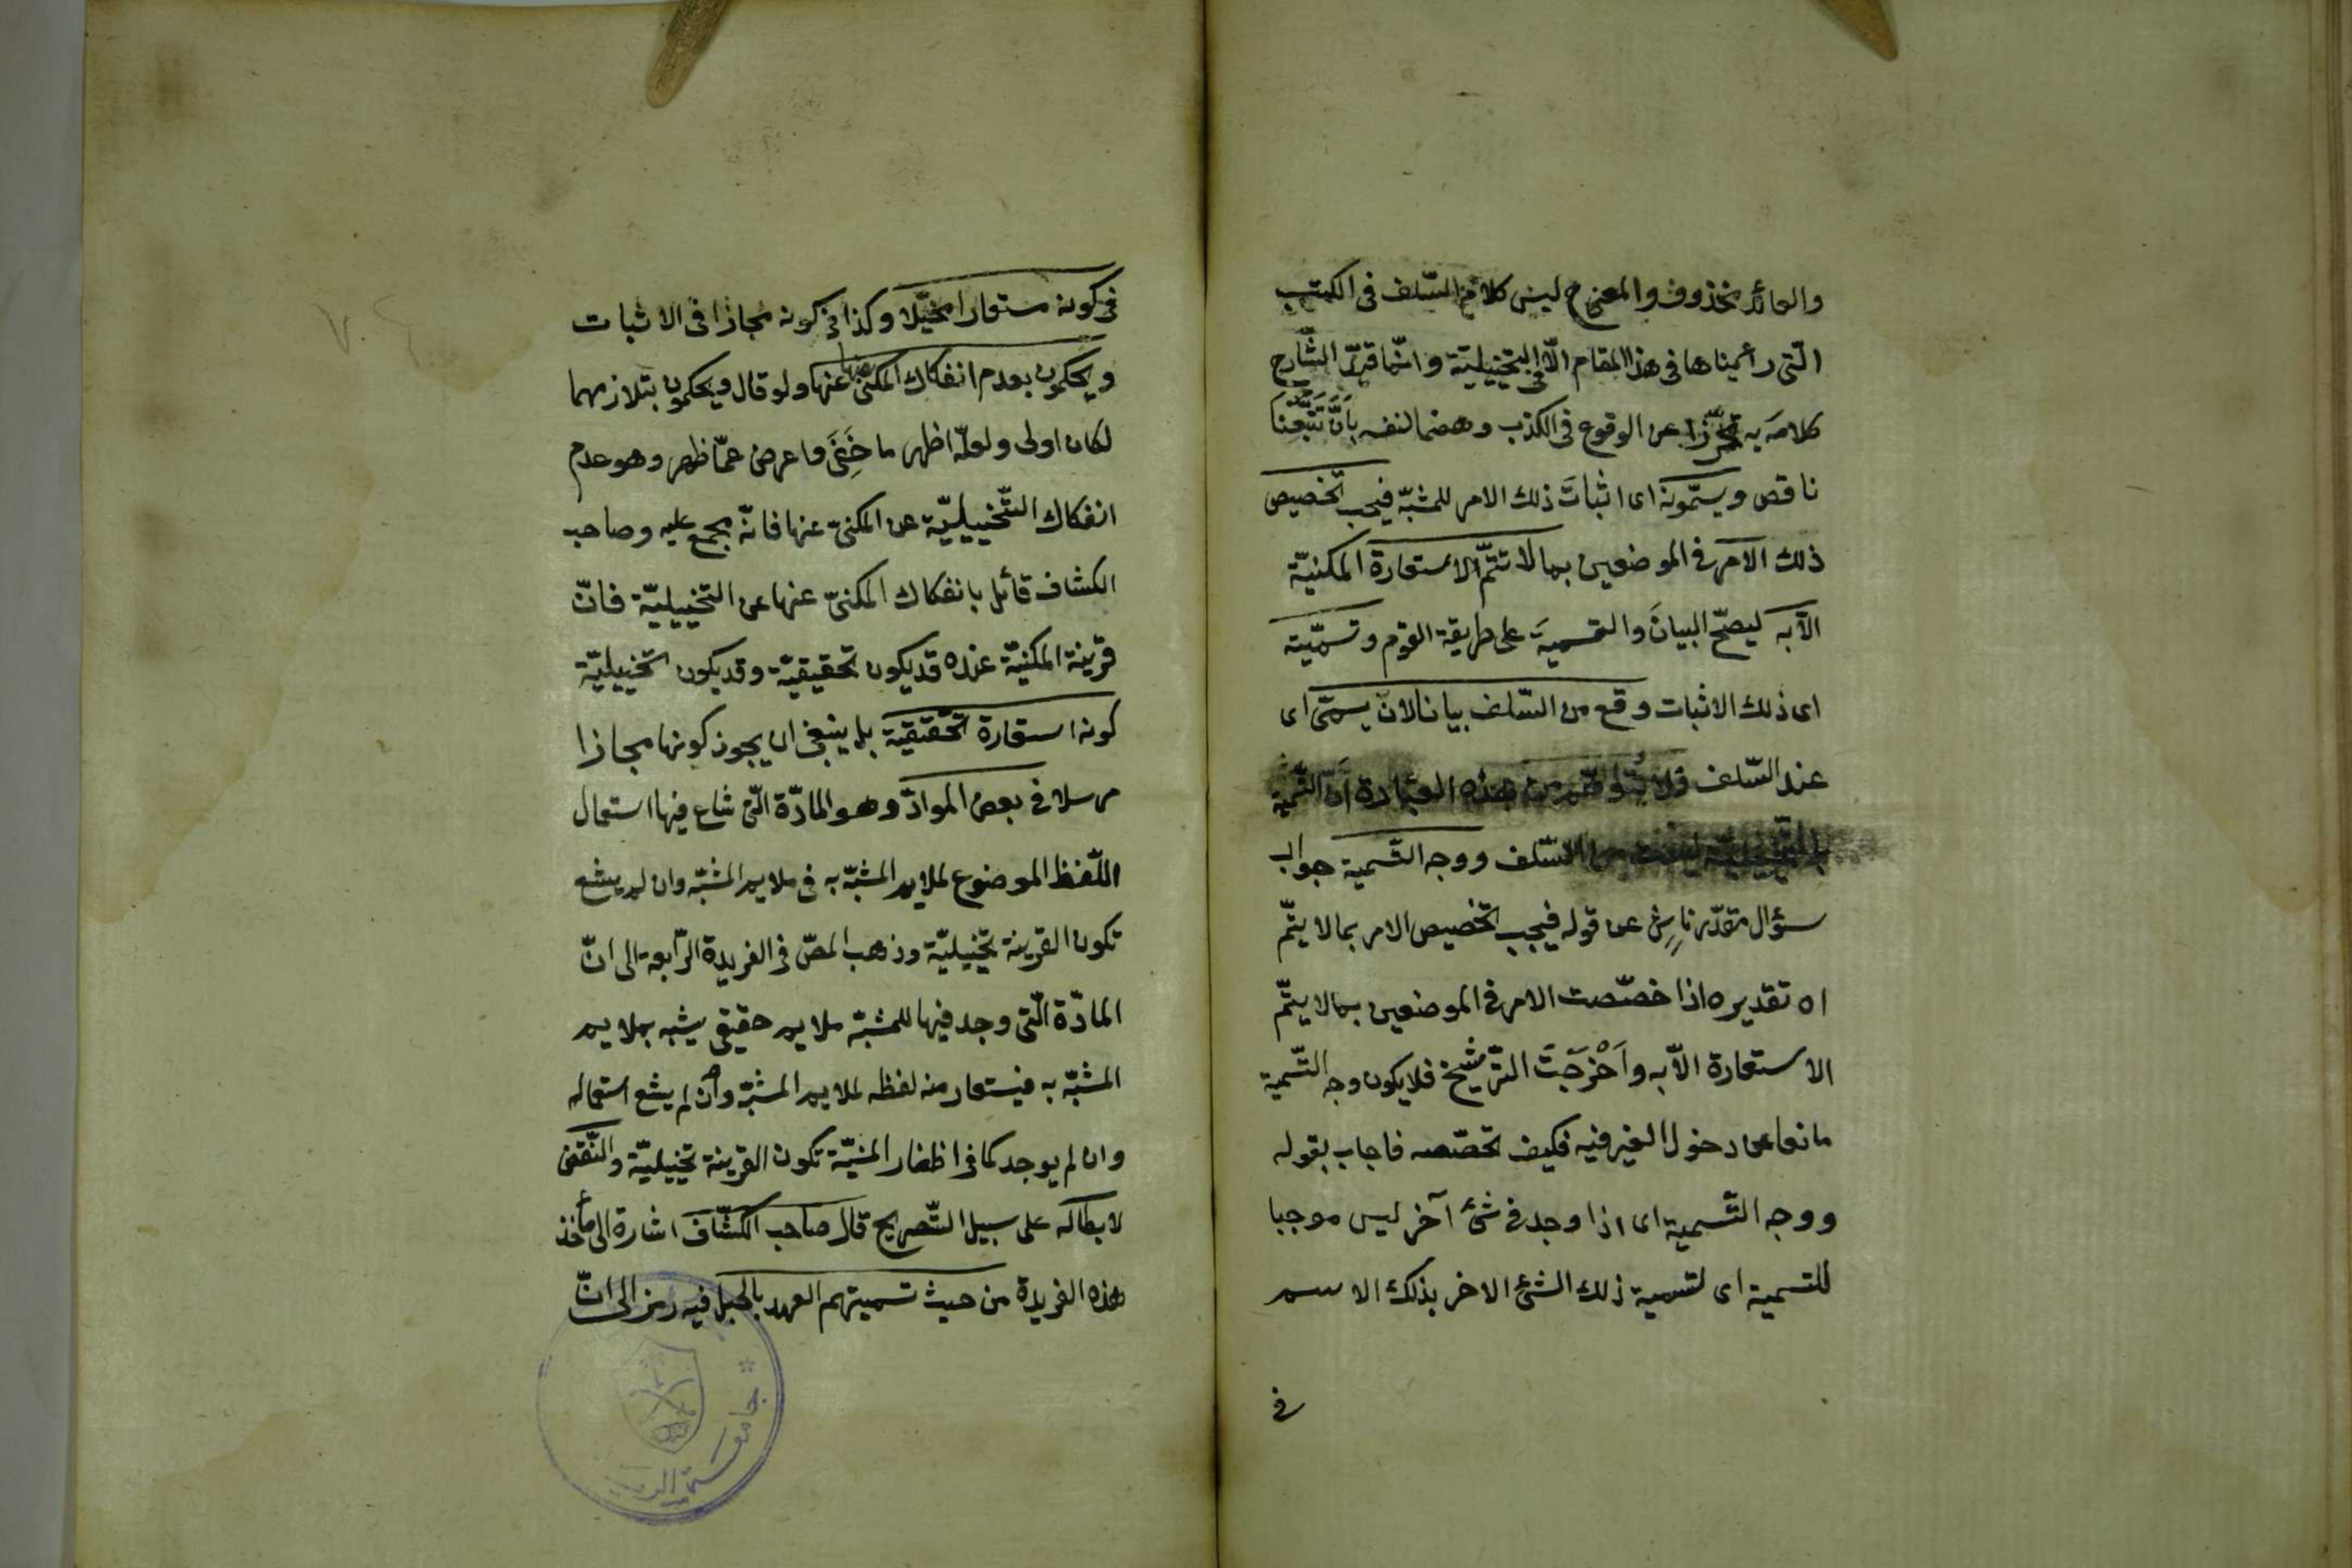 والعائد محذوف والمعنى ح ليس كلام السّلف فى الكتب
الّتى راعيناها فى هذا المقام الّا فى التخييليّة وانّما قيّد الشّارح
كلامه به تحرّزا عن الوقوع فى الكذب وهضما لنفسه بأنّ تَتَبُّعَنا
ناقص ويسمّونه اى اثباتَ ذلك الامر للمشبّه فيجب تخصيص
ذلك الامر فى الموضعين بما لا تتمّ الاستعارة المكنيّة
الّا به ليصحّ البيانَ والتسميةَ على طريقة القوم وتسميّته
اى ذلك الاثبات وقع من السّلف بيانا لان يسمّى اى
عند السّلف فلا يتوهّم من هذه العبارة أنّ التّسمية
بالتّخييليّة ليست من السّلف ووجه التّسمية جواب
سؤال مقدّر ناشٍ عن قوله فيجب تخصيص الامر بما لا يتمّ
اه تقديره اذا خصّصت الامر فى الموضعين بما لا يتمّ
الاستعارة الّا به واَخْرَجَتَ التّرشيخ فلا يكون وجه التّسمية
مانعا عن دخول الغير فيه فكيف تخصّصه فاجاب بقوله
ووجه التّسمية اى اذا وجد فى شئ آخر ليس موجبا
للتسمية اى لتسمية ذلك الشئ الاخر بذلك الاسم
فى
فى كونه مستعارا مخيّلا وكذا فى كونه مجازا فى الاثبات
ويحكمون بعدم انفكاك المكنى عنها عنها ولو قال ويحكمون بتلازمهما
لكان اولى ولعلّه اظهر ما خَفَى واعرض عمّا ظهر وهو عدم
انفكاك التّخييليّة عن المكنىّ عنها فانّه مجمع عليه وصاحب
الكشاف قائل بانفكاك المكنىّ عنها عن التخييليّة فانّ
قرينة المكنيّة عنده قد يكون تحقيقيّة وقد يكون تخييليّة
كونه استعارة تحقيقية بل ينبغى ان يجوز كونها مجازا
مرسلا فى بعض الموادّ وهو المادّة الّتى شاع فيها استعمال
اللّفظ الموضوع لملايم المشبّه به فى ملايم المشبّه وان لم يشع
تكون القرينة تخييليّة وذهب المصّ فى الفريدة الرّابعة الى انّ
المادّة الّتى وجد فيها للمشبّه ملايم حقيقى يشبه بملايم
المشبّه به فيستعار منه لفظه لملايم المشبّه وأن لم يشع استعماله
وان لم يوجد كما فى اظفار المنيّة تكون القرينة تخييليّة والنّقض
لابطاله على سبيل التّصريح قال صاحب الكشّاف اشارة الى مأخذ
هذه الفريدة من حيث تسميتهم العهد بالحبل فيه رمز الى انّ